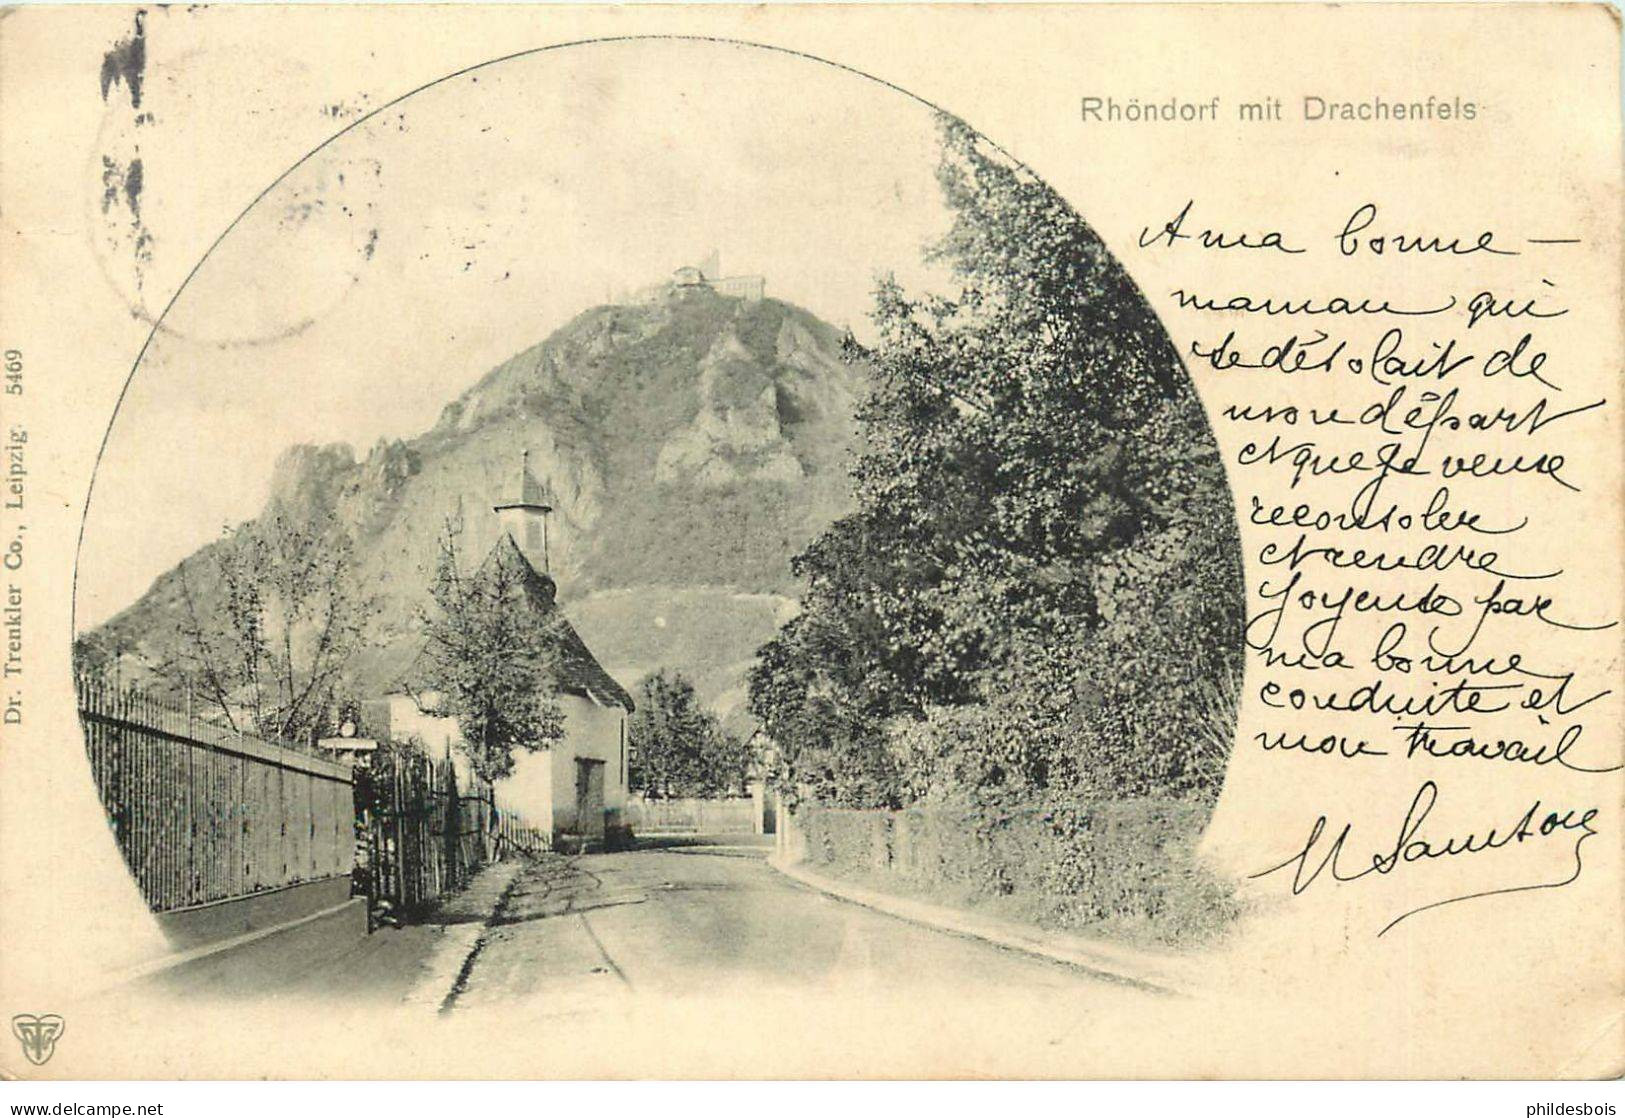 Rhöndorf mit Drachenfels
A ma bonne —
maman qui
se désolait de
mon départ
et que je veux
reconsoler
et rendre
joyeuse par
ma bonne
conduite et
mon travail
Dr. Trenkler Co., Leipzig. 5469
phildesbois